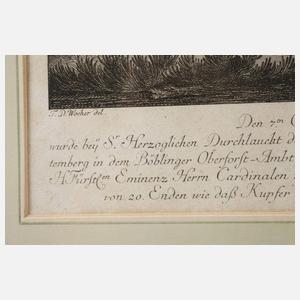 T. D. Wocher del.
Den 7.ten
wurde beÿ S.r Herzoglichen Durchlaucht d
temberg in dem Böblinger Oberforst-Ambt
H. Fürstl.en Eminenz Herrn Cardinalen
von 20. Enden wie daß Kupfer